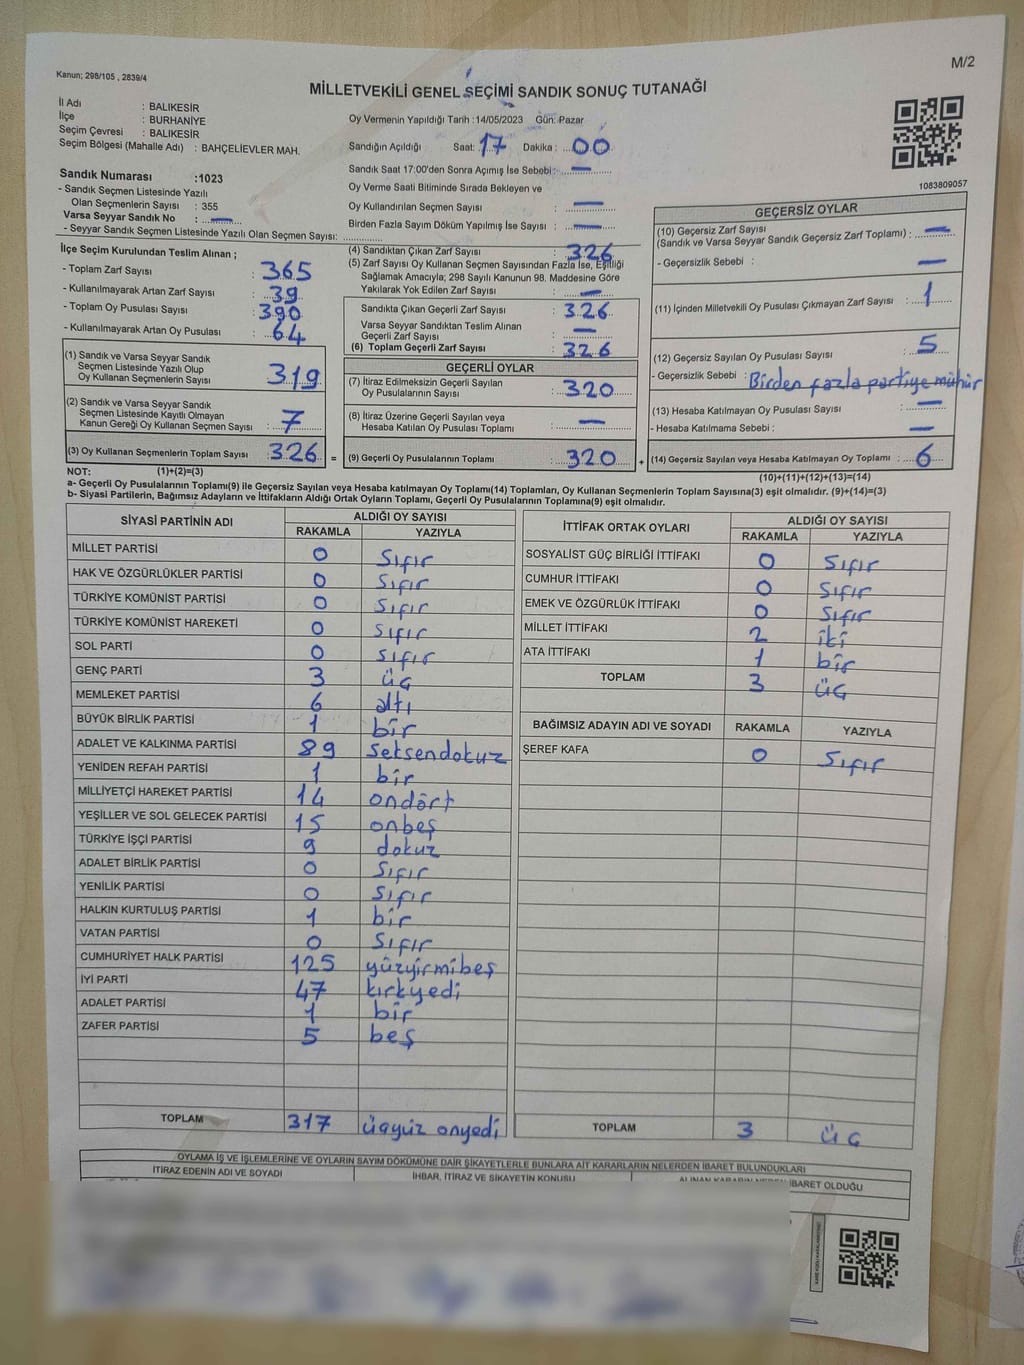 Kanun; 298/105 , 2839/4
M/2
MİLLETVEKİLİ GENEL SEÇİMİ SANDIK SONUÇ TUTANAĞI
İl Adı : BALIKESİR
İlçe : BURHANİYE
Seçim Çevresi : BALIKESİR
Seçim Bölgesi (Mahalle Adı) : BAHÇELİEVLER MAH.
Sandık Numarası :1023
- Sandık Seçmen Listesinde Yazılı
Olan Seçmenlerin Sayısı : 355
Varsa Seyyar Sandık No : —
- Seyyar Sandık Seçmen Listesinde Yazılı Olan Seçmen Sayısı:
Oy Vermenin Yapıldığı Tarih :14/05/2023 Gün: Pazar
Sandığın Açıldığı Saat: 17 Dakika : 00
Sandık Saat 17:00'den Sonra Açımış İse Sebebi: —
Oy Verme Saati Bitiminde Sırada Bekleyen ve
Oy Kullandırılan Seçmen Sayısı : —
Birden Fazla Sayım Döküm Yapılmış İse Sayısı : —
1083809057
İlçe Seçim Kurulundan Teslim Alınan ;
- Toplam Zarf Sayısı : 365
- Kullanılmayarak Artan Zarf Sayısı : 39
- Toplam Oy Pusulası Sayısı : 390
- Kullanılmayarak Artan Oy Pusulası : 64
(1) Sandık ve Varsa Seyyar Sandık
Seçmen Listesinde Yazılı Olup
Oy Kullanan Seçmenlerin Sayısı : 319
(2) Sandık ve Varsa Seyyar Sandık
Seçmen Listesinde Kayıtlı Olmayan
Kanun Gereği Oy Kullanan Seçmen Sayısı : 7
(3) Oy Kullanan Seçmenlerin Toplam Sayısı : 326 =
(4) Sandıktan Çıkan Zarf Sayısı : 326
(5) Zarf Sayısı Oy Kullanan Seçmen Sayısından Fazla İse, Eşitliği
Sağlamak Amacıyla; 298 Sayılı Kanunun 98. Maddesine Göre
Yakılarak Yok Edilen Zarf Sayısı : —
Sandıkta Çıkan Geçerli Zarf Sayısı : 326
Varsa Seyyar Sandıktan Teslim Alınan
Geçerli Zarf Sayısı : —
(6) Toplam Geçerli Zarf Sayısı : 326
GEÇERLİ OYLAR
(7) İtiraz Edilmeksizin Geçerli Sayılan
Oy Pusulalarının Sayısı : 320
(8) İtiraz Üzerine Geçerli Sayılan veya
Hesaba Katılan Oy Pusulası Toplamı : —
(9) Geçerli Oy Pusulalarının Toplamı : 320 +
GEÇERSİZ OYLAR
(10) Geçersiz Zarf Sayısı
(Sandık ve Varsa Seyyar Sandık Geçersiz Zarf Toplamı) : —
- Geçersizlik Sebebi : —
(11) İçinden Milletvekili Oy Pusulası Çıkmayan Zarf Sayısı : 1
(12) Geçersiz Sayılan Oy Pusulası Sayısı : 5
- Geçersizlik Sebebi : Birden fazla partiye mühür
(13) Hesaba Katılmayan Oy Pusulası Sayısı : —
- Hesaba Katılmama Sebebi : —
(14) Geçersiz Sayılan veya Hesaba Katılmayan Oy Toplamı : 6
NOT: (1)+(2)=(3)
(10)+(11)+(12)+(13)=(14)
a- Geçerli Oy Pusulasının Toplamı(9) ile Geçersiz Sayılan veya Hesaba katılmayan Oy Toplamı(14) Toplamları, Oy Kullanan Seçmenlerin Toplam Sayısına(3) eşit olmalıdır. (9)+(14)=(3)
b- Siyasi Partilerin, Bağımsız Adayların ve İttifakların Aldığı Ortak Oyların Toplamı, Geçerli Oy Pusulalarının Toplamına(9) eşit olmalıdır.
SİYASİ PARTİNİN ADI
ALDIĞI OY SAYISI
RAKAMLA YAZIYLA
MİLLET PARTİSİ 0 Sıfır
HAK VE ÖZGÜRLÜKLER PARTİSİ 0 Sıfır
TÜRKİYE KOMÜNİST PARTİSİ 0 Sıfır
TÜRKİYE KOMÜNİST HAREKETİ 0 Sıfır
SOL PARTİ 0 Sıfır
GENÇ PARTİ 3 üç
MEMLEKET PARTİSİ 6 altı
BÜYÜK BİRLİK PARTİSİ 1 bir
ADALET VE KALKINMA PARTİSİ 89 seksendokuz
YENİDEN REFAH PARTİSİ 1 bir
MİLLİYETÇİ HAREKET PARTİSİ 14 ondört
YEŞİLLER VE SOL GELECEK PARTİSİ 15 onbeş
TÜRKİYE İŞÇİ PARTİSİ 9 dokuz
ADALET BİRLİK PARTİSİ 0 Sıfır
YENİLİK PARTİSİ 0 Sıfır
HALKIN KURTULUŞ PARTİSİ 1 bir
VATAN PARTİSİ 0 Sıfır
CUMHURİYET HALK PARTİSİ 125 yüzyirmibeş
İYİ PARTİ 47 kırkyedi
ADALET PARTİSİ 1 bir
ZAFER PARTİSİ 5 beş
TOPLAM 317 üçyüz onyedi
İTTİFAK ORTAK OYLARI
ALDIĞI OY SAYISI
RAKAMLA YAZIYLA
SOSYALİST GÜÇ BİRLİĞİ İTTİFAKI 0 Sıfır
CUMHUR İTTİFAKI 0 Sıfır
EMEK VE ÖZGÜRLÜK İTTİFAKI 0 Sıfır
MİLLET İTTİFAKI 2 iki
ATA İTTİFAKI 1 bir
TOPLAM 3 üç
BAĞIMSIZ ADAYIN ADI VE SOYADI RAKAMLA YAZIYLA
ŞEREF KAFA 0 Sıfır
TOPLAM 3 üç
OYLAMA İŞ VE İŞLEMLERİNE VE OYLARIN SAYIM DÖKÜMÜNE DAİR ŞİKAYETLERLE BUNLARA AİT KARARLARIN NELERDEN İBARET BULUNDUKLARI
İTİRAZ EDENİN ADI VE SOYADI
İHBAR, İTİRAZ VE ŞİKAYETİN KONUSU
ALINAN KARARIN NEDEN İBARET OLDUĞU